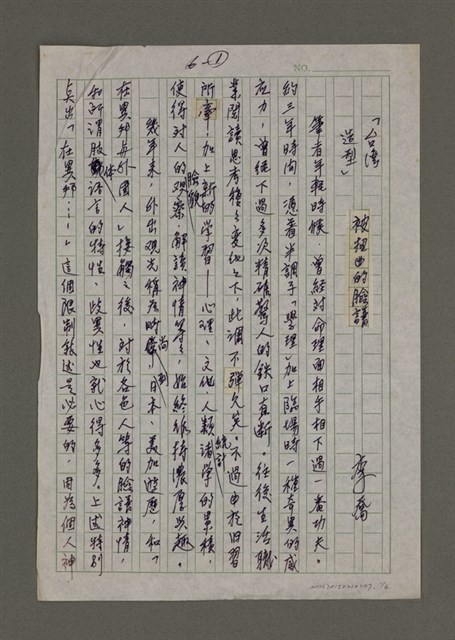 6-①
NO.
「台灣
造型」
被扭曲的臉譜
李喬
筆者年輕時候,曾經對命理面相手相下過一番功夫。
約三年時間,憑着半調子「學理」加上臨場時一種奇異的感
應力,曾經下過多次精確驚人的鉄口直斷。往後生活職
業閱讀思考種種變化之下,此調不彈久矣。不過由於旧習
所牽!加上新的學習——心理、文化、人類統計諸學的累積,
使得對人的臉貌觀察,解讀神情等,始終維持濃厚興趣。
幾年來,外出觀光 日本、美加遊歷,和「
在異邦與外國人」接觸之後,對於各色人等的臉譜神情,
和所謂肢体語言的特性、歧異性也就心得多多。上述特別
点出「在異邦……」這個限制敍述是必要的,因為個人神